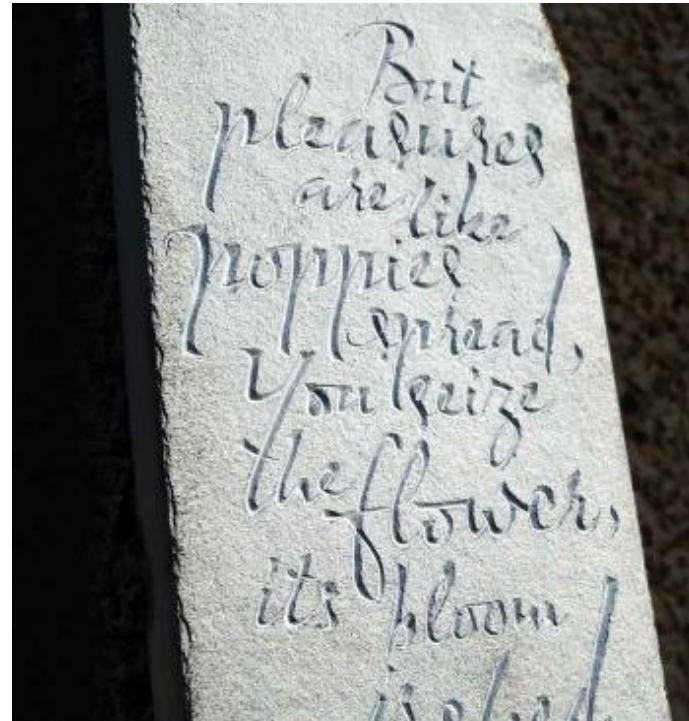 But
pleasures
are like
poppies
spread,
You seize
the flower,
its bloom
is shed